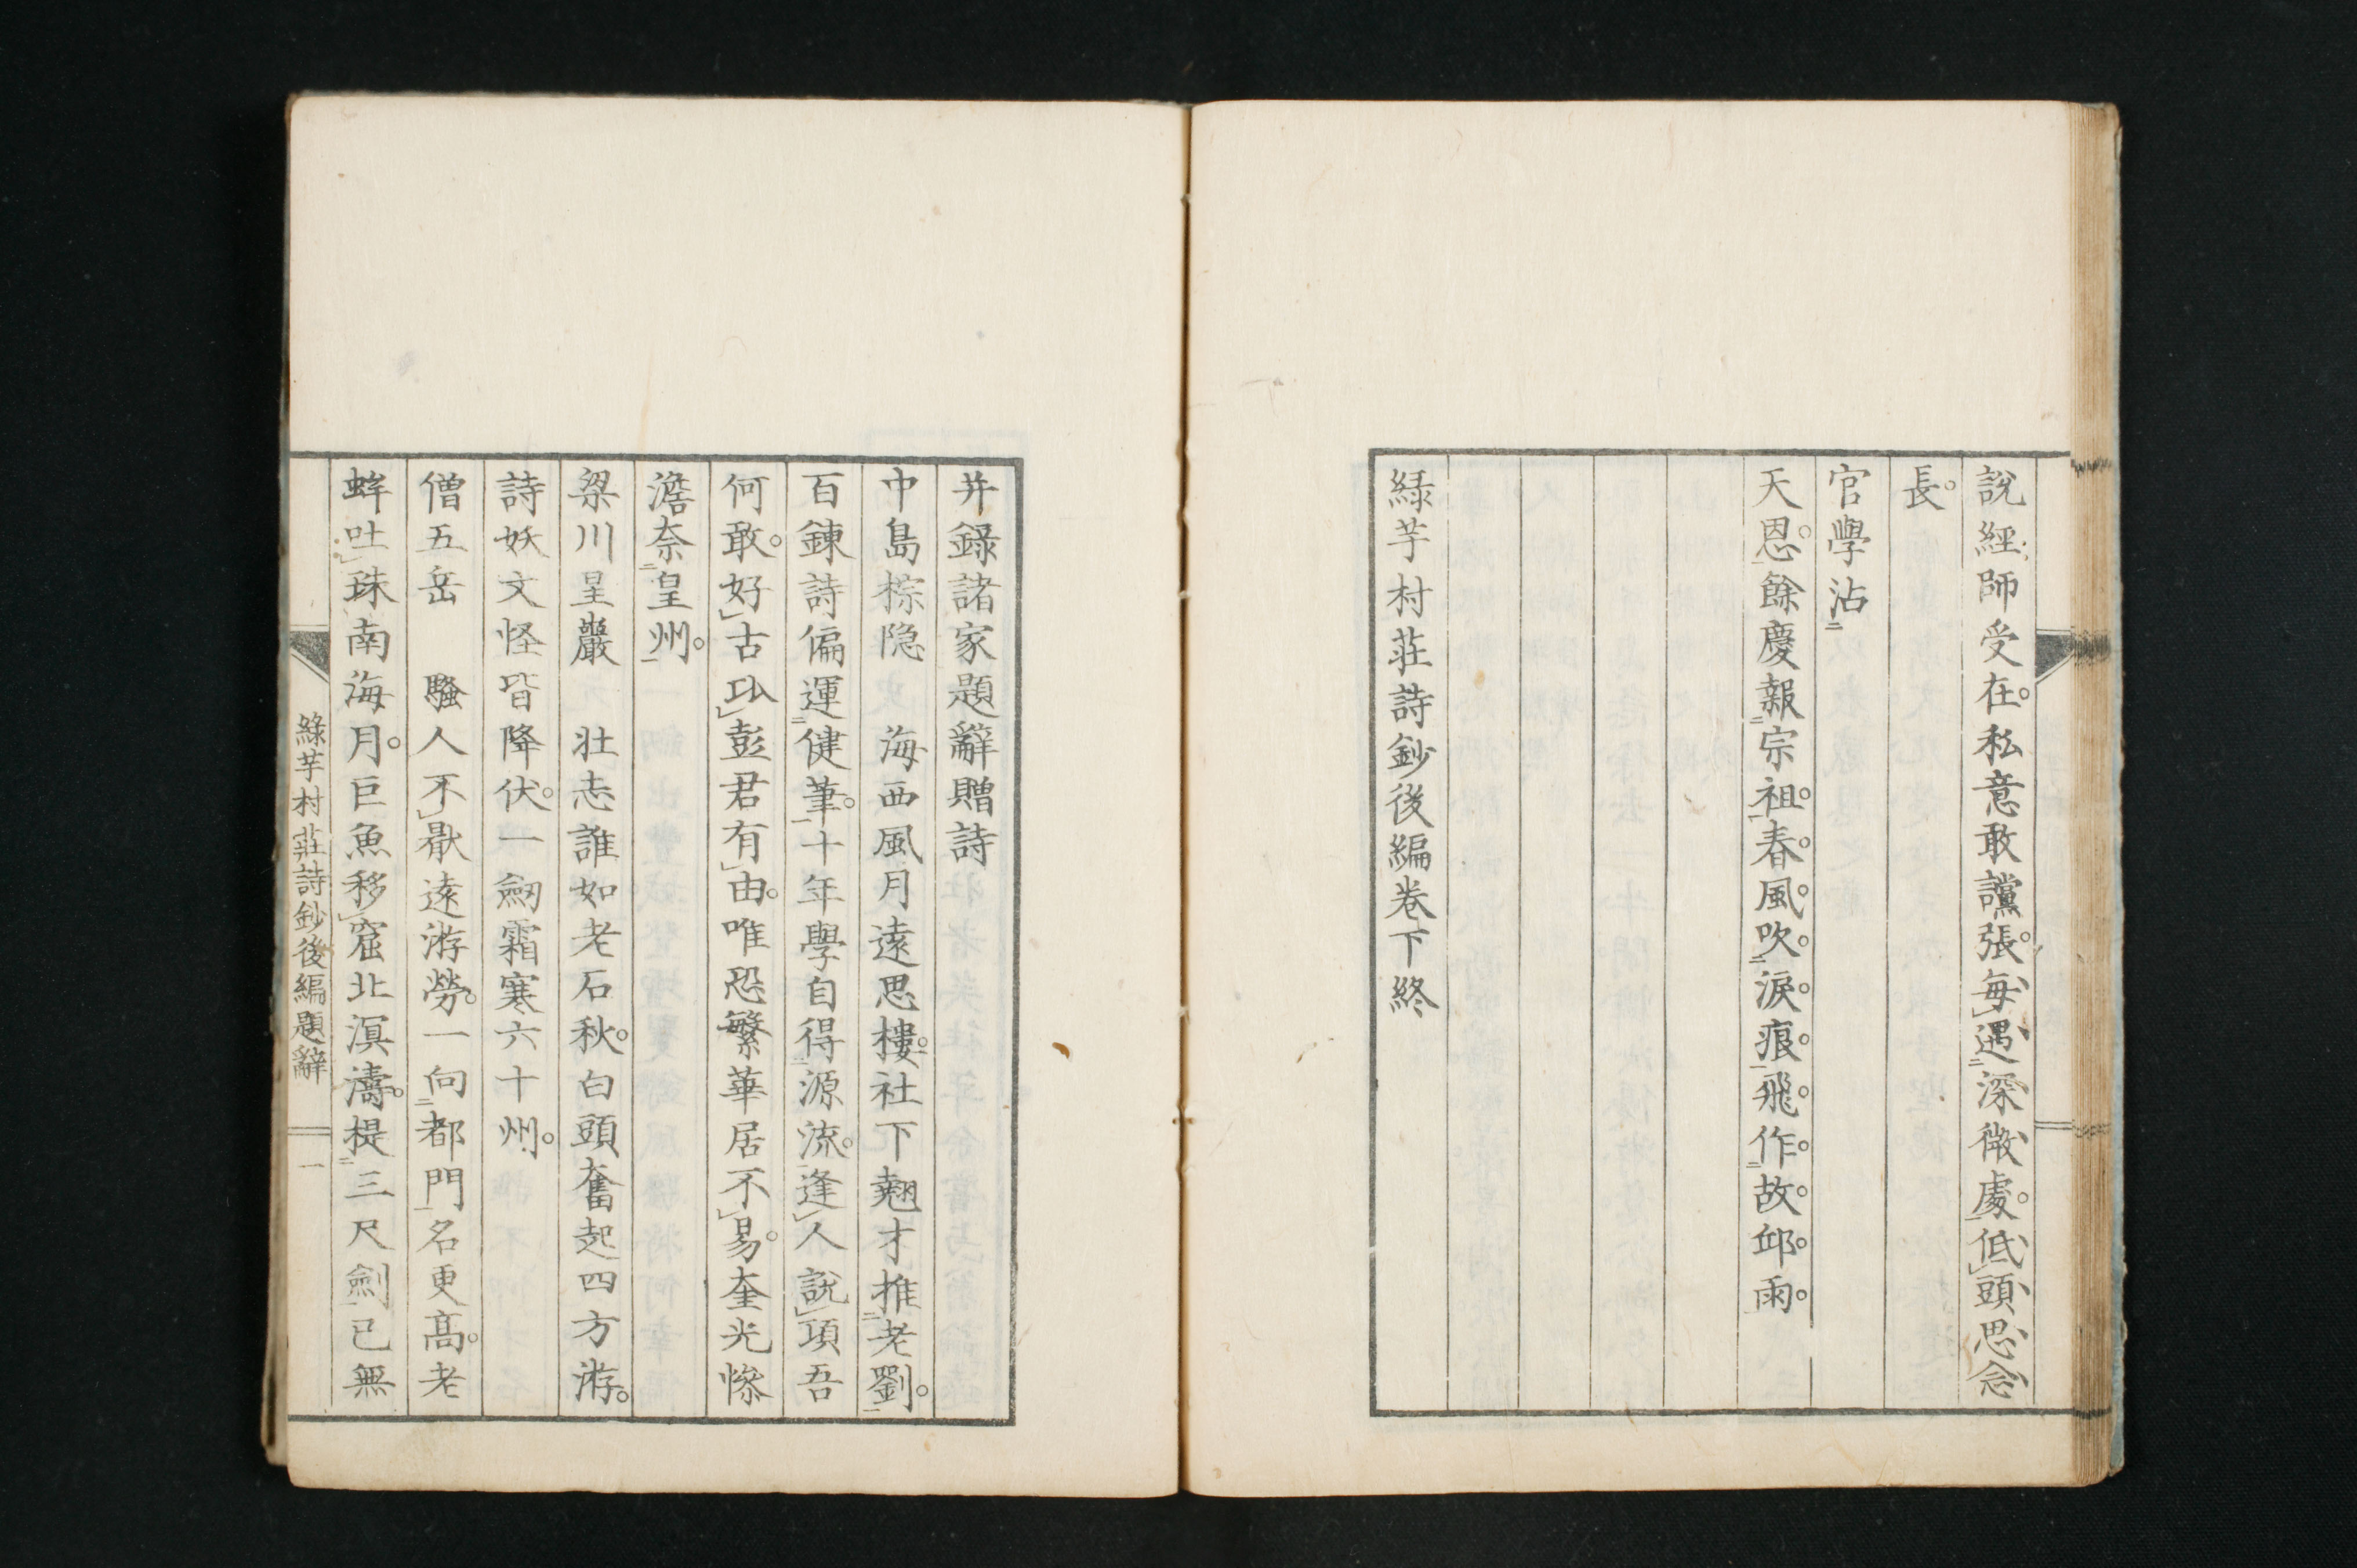 說經師受在。私意敢讜張。每遇深微處。低頭思念
長。
官學沾
天恩。餘慶報宗祖。春風吹淚痕。飛作故邱雨。
緑芋村莊詩鈔後編卷下終
幷錄諸家題辭贈詩
中島棕隐 海西風月遠思樓。社下翹才推老劉。
百鍊詩偏運健筆。十年學自得源流。逢人說項吾
何敢。好古㕥彭君有由。唯恐繁華居不易。奎光慘
澹奈皇州。
梁川星巖 壯志誰如老石秋。白頭奮起四方游。
詩妖文怪皆降伏。一劒霜寒六十州。
僧五岳 騷人不厭遠游勞。一向都門名更高。老
蚌吐珠南海月。巨魚移窟北溟濤。提三尺劍已無
綠芋村莊詩鈔後編題辭 一